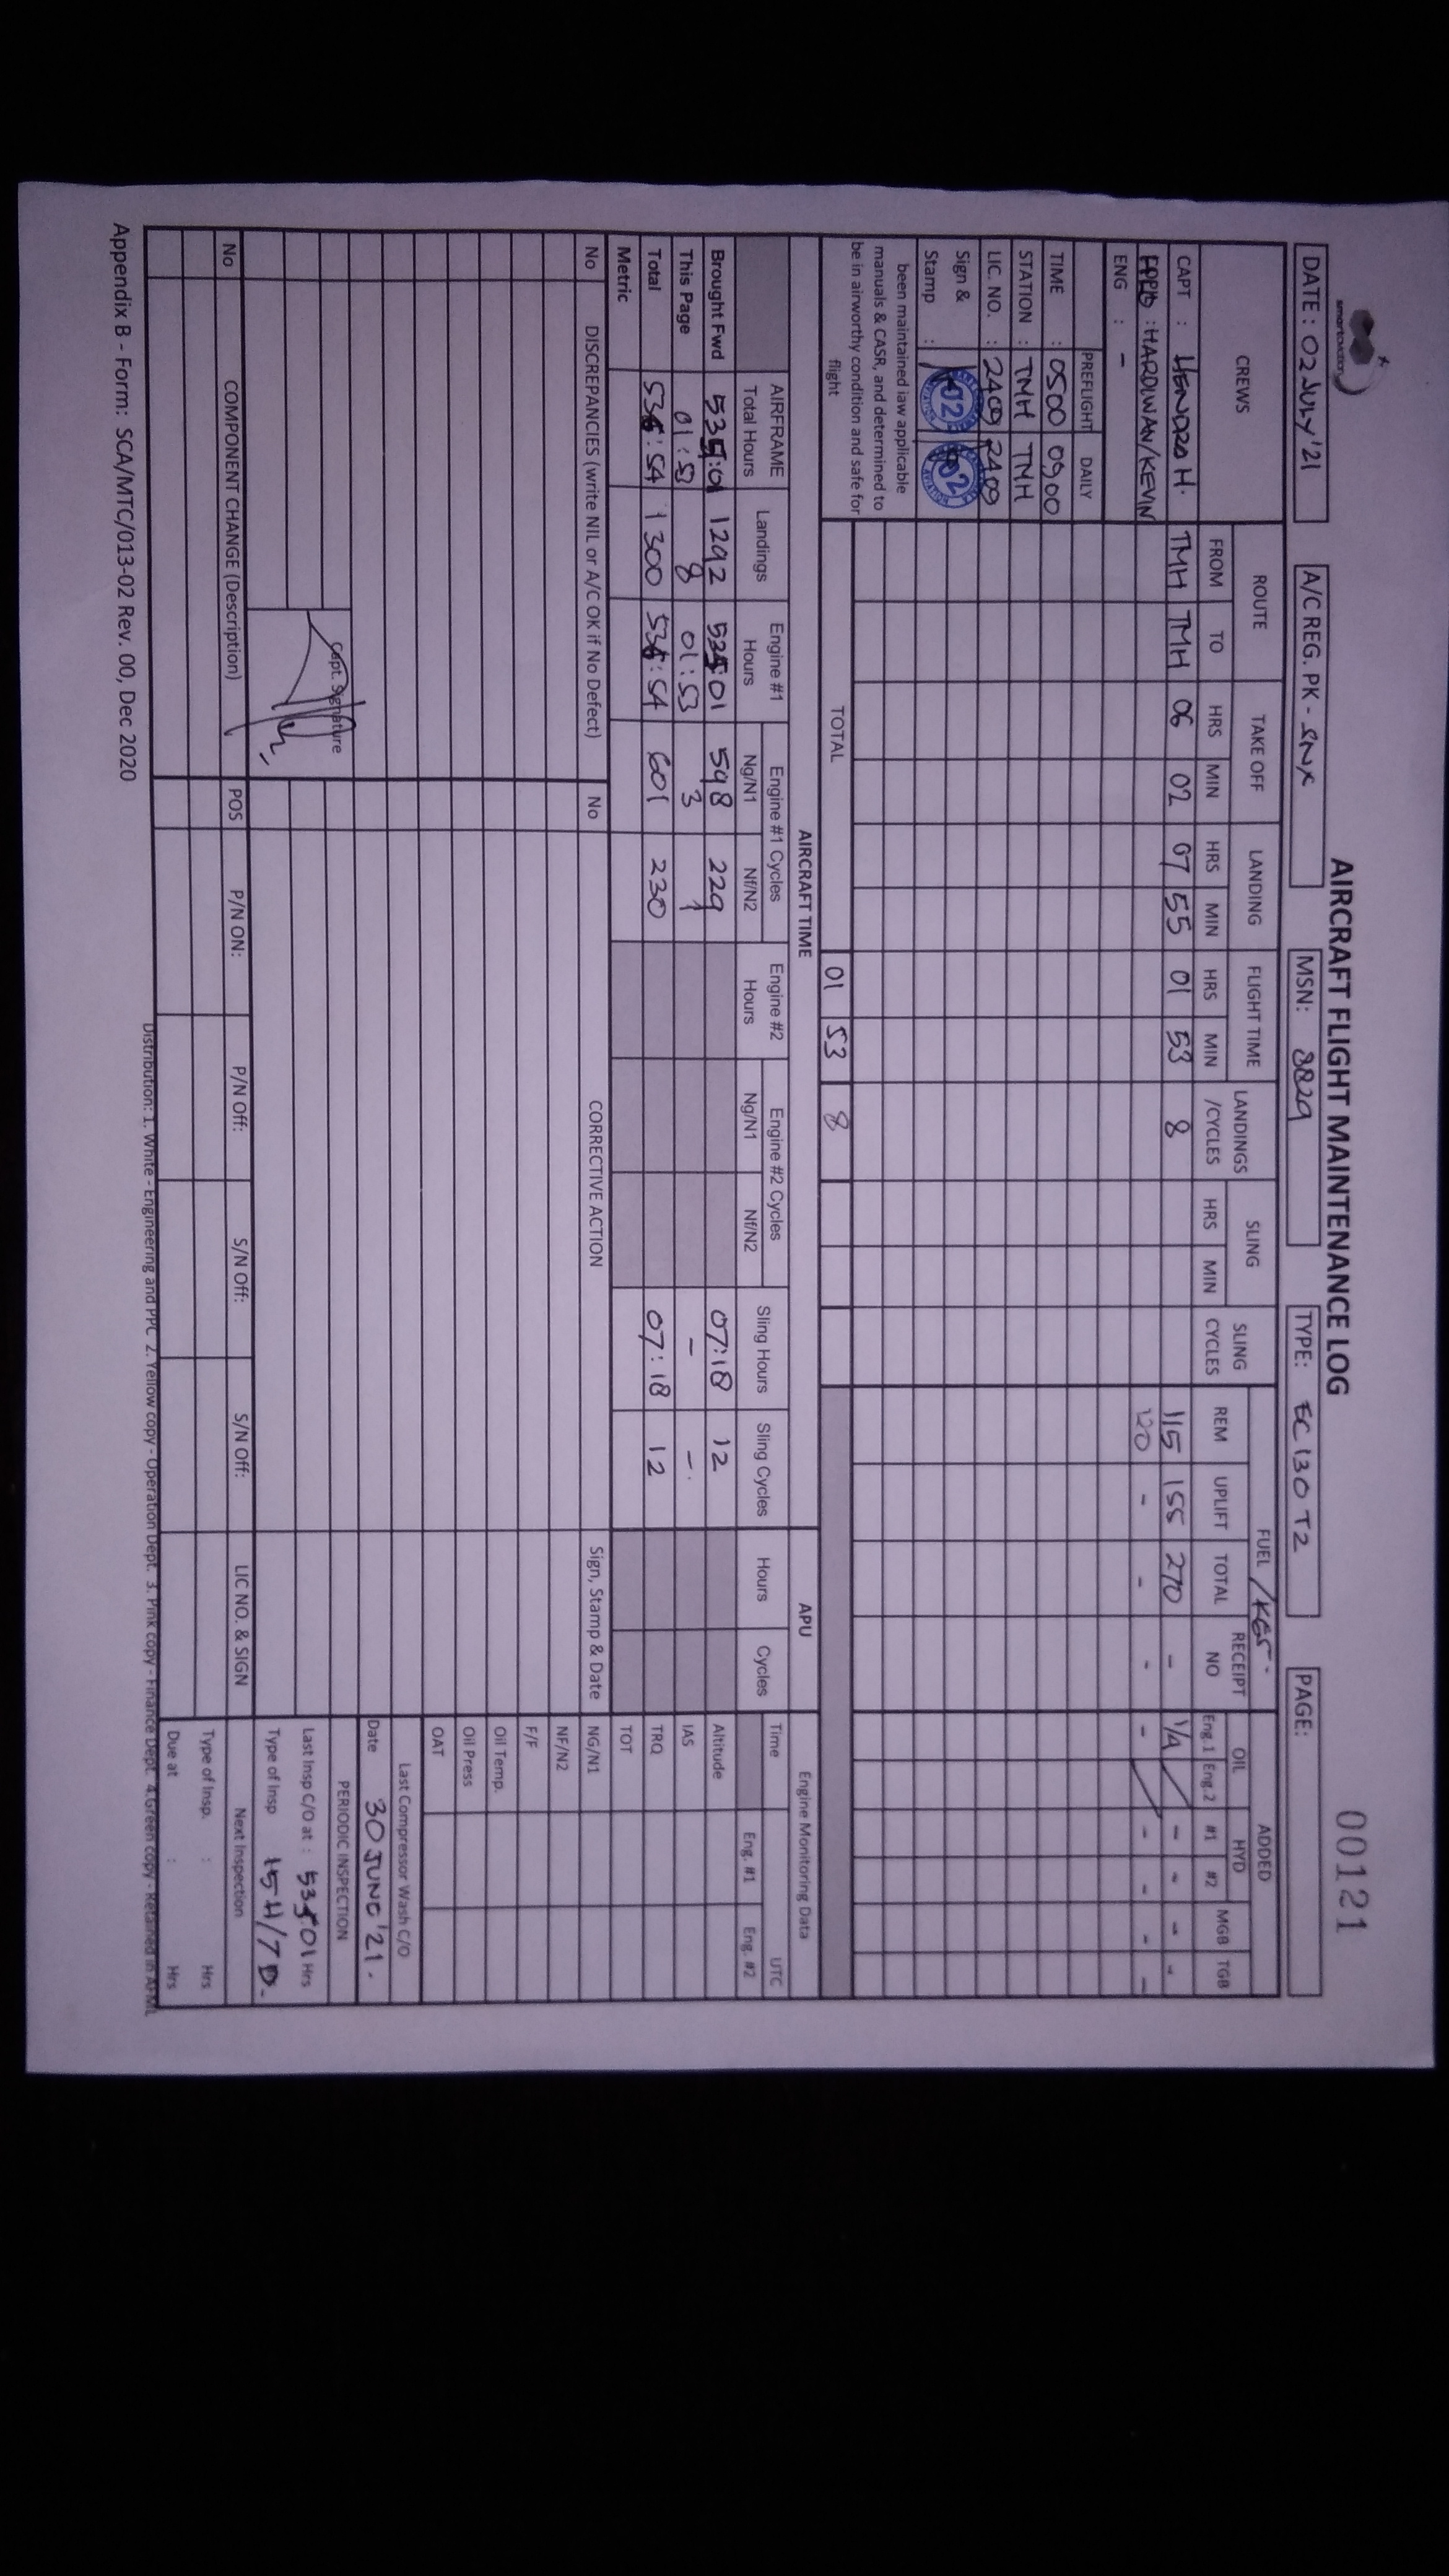 smartaviation
AIRCRAFT FLIGHT MAINTENANCE LOG
00121
DATE : 02 JULY '21 A/C REG. PK - MSN: 8829 TYPE: EC 130 T2 PAGE:
CREWS ROUTE TAKE OFF LANDING FLIGHT TIME LANDINGS /CYCLES SLING SLING CYCLES FUEL / KGS. ADDED
FROM TO HRS MIN HRS MIN HRS MIN HRS MIN REM UPLIFT TOTAL RECEIPT NO OIL Eng.1 Eng.2 HYD #1 #2 MGB TGB
CAPT : HENDRA H. TMH TMH 06 02 07 55 01 53 8 115 155 270 - 1/4 - - - -
: HARDIWAN/KEVIN 120 - - - - - - - -
ENG : -
PREFLIGHT DAILY
TIME : 0500 0900
STATION : TMH TMH
LIC. NO. : 2409 2409
Sign &
Stamp : 02 02
been maintained iaw applicable
manuals & CASR, and determined to
be in airworthy condition and safe for
flight
TOTAL 01 53 8
AIRCRAFT TIME APU Engine Monitoring Data
AIRFRAME Total Hours Landings Engine #1 Hours Engine #1 Cycles Ng/N1 Nf/N2 Engine #2 Hours Engine #2 Cycles Ng/N1 Nf/N2 Sling Hours Sling Cycles Hours Cycles Time UTC Eng. #1 Eng. #2
Brought Fwd 535:01 1292 535:01 598 229 07:18 12 Altitude
This Page 01:53 8 01:53 3 1 - - IAS
Total 536:54 1300 536:54 601 230 07:18 12 TRQ
Metric TOT
No DISCREPANCIES (write NIL or A/C OK if No Defect) No CORRECTIVE ACTION Sign, Stamp & Date NG/N1
NF/N2
F/F
Oil Temp.
Oil Press
OAT
Last Compressor Wash C/O
Date 30 JUNE '21.
Capt. Signature
PERIODIC INSPECTION
Last Insp C/O at : 535:01 Hrs
Type of Insp 15 H/7 D.
No COMPONENT CHANGE (Description) POS P/N ON: P/N Off: S/N Off: S/N Off: LIC NO. & SIGN Next Inspection
Type of Insp. : Hrs
Due at : Hrs
Distribution: 1. White - Engineering and PPC 2. Yellow copy - Operation Dept. 3. Pink copy - Finance Dept. 4.Green copy - Retained in AFML
Appendix B - Form: SCA/MTC/013-02 Rev. 00, Dec 2020